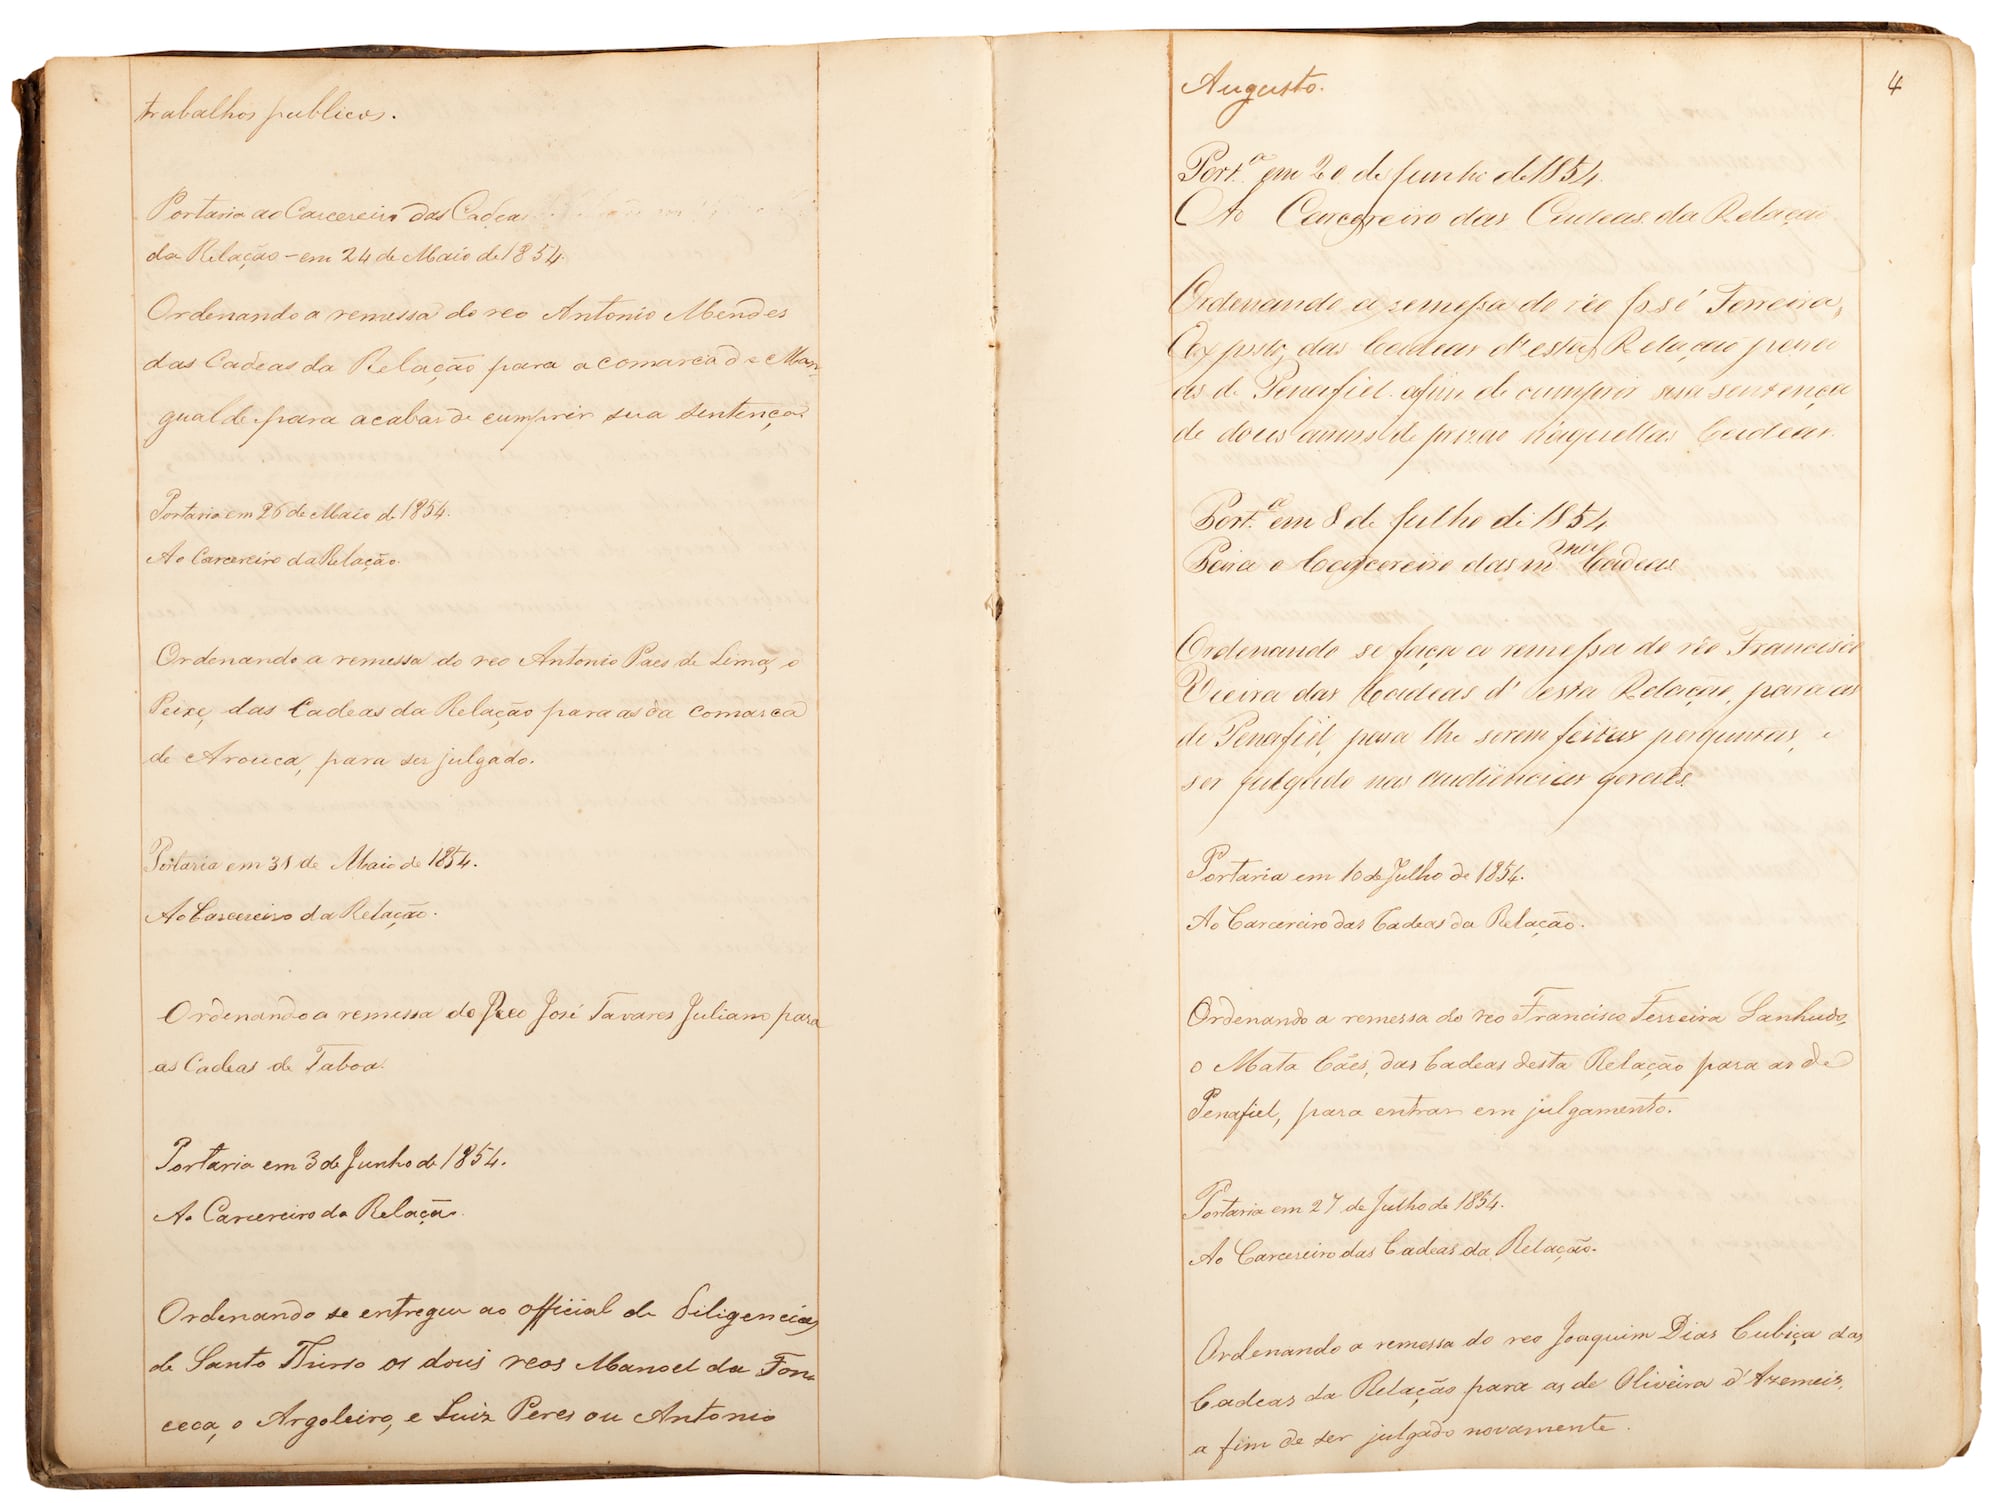 trabalhos publicos.
Portaria ao Carcereiro das Cadeas
da Relação - em 24 de Maio de 1854.
Ordenando a remessa do reo Antonio Mendes
das Cadeas da Relação para a comarca de Man-
gualde para acabar de cumprir sua sentença.
Portaria em 26 de Maio de 1854.
Ao Carcereiro da Relação.
Ordenando a remessa do reo Antonio Paes de Lima, o
Peixe, das Cadeas da Relação para as da comarca
de Arouca, para ser julgado.
Portaria em 31 de Maio de 1854.
Ao Carcereiro da Relação.
Ordenando a remessa do Reo José Tavares Juliano para
as Cadeas de Taboa.
Portaria em 3 de Junho de 1854.
Ao Carcereiro da Relação.
Ordenando se entregue ao official de diligencias
de Santo Thirso os dous reos Manoel da Fon-
ceca, o Argoleiro, e Luiz Peres ou Antonio
4
Augusto.
Port.ª em 20 de Junho de 1854.
Ao Carcereiro das Cadeas da Relação
Ordenando a remessa do réo José Ferreira,
Exposto, das Cadeas d'esta Relação para
as de Penafiel afim de cumprir sua sentença
de dous annos de prizao n'aquellas Cadeas.
Port.ª em 8 de Julho de 1854
Para o Carcereiro das m.mas Cadeas
Ordenando se faça a remessa do réo Francisco
Vieira das Cadeas d'esta Relação, para as
de Penafiel, para lhe serem feitas perguntas, e
ser julgado nas audiencias geraes.
Portaria em 10 de Julho de 1854.
Ao Carcereiro das Cadeas da Relação.
Ordenando a remessa do reo Francisco Ferreira Lanhudo,
o Mata Cães, das Cadeas desta Relação para as de
Penafiel, para entrar em julgamento.
Portaria em 27 de Julho de 1854.
Ao Carcereiro das Cadeas da Relação.
Ordenando a remessa do reo Joaquim Dias Cubiça das
Cadeas da Relação para as de Oliveira d'Azemeis,
a fim de ser julgado novamente.